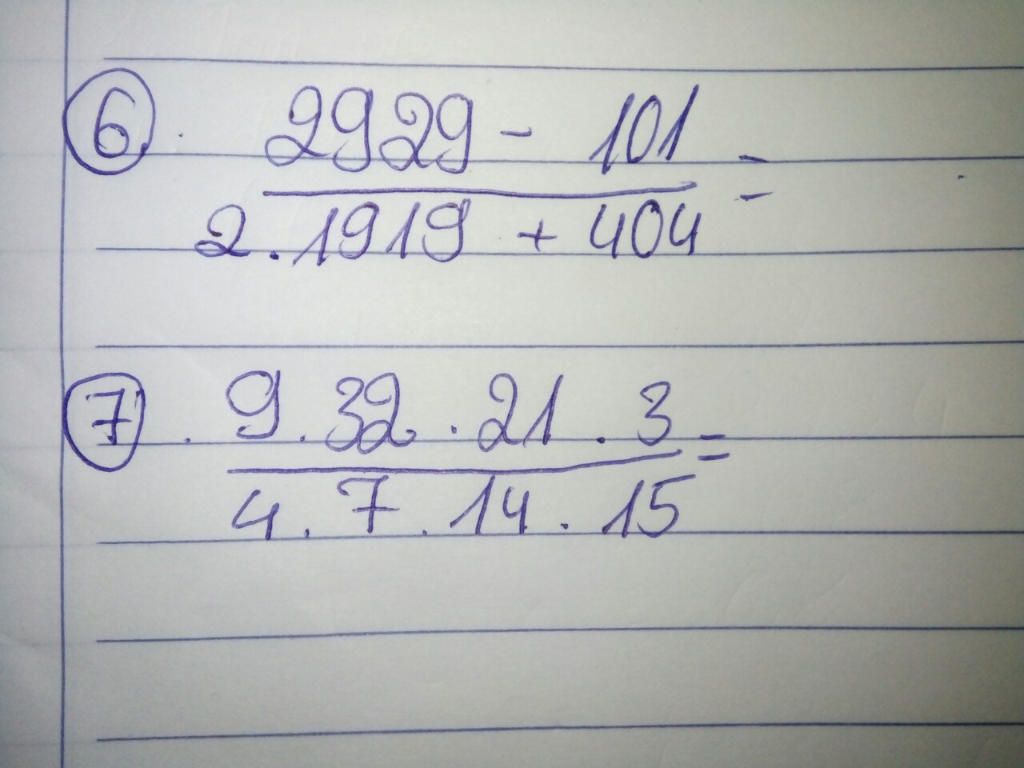 6. 2929 - 101 =
2.1919 + 404
7. 9.32.21.3 =
4.7.14.15